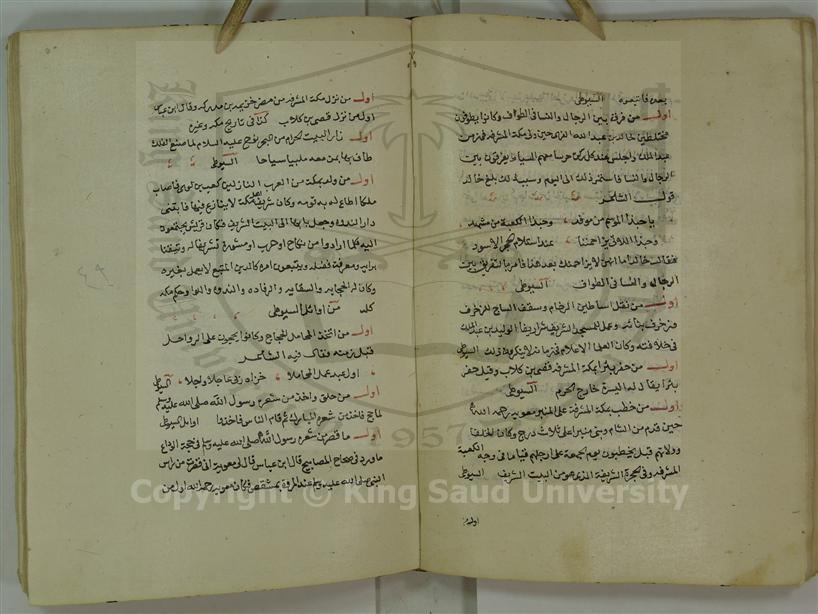 بعده فاتبعوه السيوطي
اول من فرق بين الرجال والنساء في الطواف وكانوا يطوفون
مختلطين خالد بن عبد الله القسري حين ولي مكة المشرفة في زمن
عبد الملك واجلس عند كل ركن حرسا معهم السياط يفرقون بين
الرجال والنسا فاستمر ذلك الى اليوم وسببه انه بلغ خالد
قول الشاعر
يا حبذا الموسم من موفد وحبذا الكعبة من مشهد
وحبذا اللاتي يزاحمننا عند استلام الحجر الاسود
فقال خالد اما انهن لا يزاحمنك بعد هذا فامر بالتفريق بين
الرجال والنسا في الطواف السيوطي
اول من نقل اساطين الرخام وسقف الساج المزخرف
وزخرف بنائه وعمل للمسجد الشريف شراريفا الوليد بن عبد الملك
في خلافته وكان العلما الاعلام في زمانه لا ينكرون ذلك السيوطي
اول من حفر بئرا بمكة المشرفة قصي بن كلاب وقيل حفر
بئرا يقال له اليسرة خارج الحرم السيوطي
اول من خطب بمكة المشرفة على المنبر معوية رحمه الله
حين قدم من الشام وبنى منبرا على ثلاث درج وكان الخلفا
وولاتهم قبل يخطبون يوم الجمعة على ارجلهم قياما في وجه الكعبة
المشرفة وفي الحجرة الشريفة الذي هو من البيت الشريف السيوطي
اول من
اول من نزل مكة المشرفة من مضر خزيمة بن مدركة وقال ابن عباس
اول من نزل قصي بن كلاب كذا في تاريخ مكة وغيره
اول زار البيت الحرام من نوح عليه السلام لما صنع الفلك
طاف بها بمن معه ملبيا سياحا السيوطي
اول من ولد بمكة من العرب النازلين كعب بن لوي فاصاب
ملكا اطاع له به قومه وكان شريف اهل مكة لا ينازع فيها فابتنى
دار الندوة وجعل بابها الى البيت الشريف فكان قريش يجتمعون
اليه كلما ارادوا من نكاح او حرب او مشورة تشريفا له وتيقنا
برايه ومعرفة فضله ويتبعون امره كالدين المتبع لا يعمل بغيره
وكان له الحجابه والسقايه والرفاده والندوه واللوا وحكم مكه
كله من اوائل السيوطي
اول من اتخذ المحامل للحجاج وكانوا يحجون على الرواحل
قبل زمنه فقال فيه الشاعر
اول عبد عمل المحاملا خزاه ربي عاجلا واجلا السيوطي
اول من حلق واخذ من شعره رسول الله صلى الله عليه وسلم
لما حج فاخذ من شعره المبارك ثم قام الناس فاخذوا اوائل السيوطي
اول ما قصر من شعره رسول الله صلى الله عليه وسلم في حجة الوداع
ما ورد في صحاح المصابيح قال ابن عباس قال لي معوية اني قصرت من راس
النبي صلى الله عليه وسلم عند المروة بمشقص فكان معوية رحمه الله اول من
1957
Copyright © King Saud University